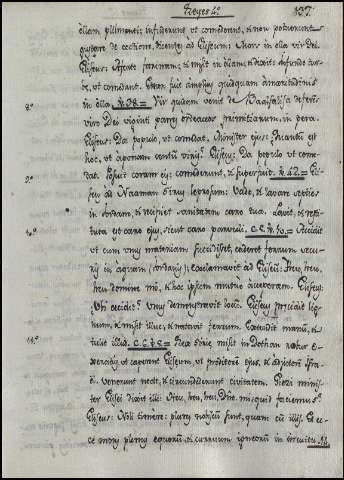 Reges 4.º 137.
ollam pulmenti; infuderunt ut comederent, & non potuerunt
gustare de coctione, dicentes ad Eliseum: Mors in olla vir Dei.
Eliseus: Afferte farinam; & misit in ollam; & dixit: infunde tur-
bæ, ut comedant. Et non fuit amplius quidquam amaritudinis
8.º in olla. V. 38.= Vir quidam venit de Baalsalisa deferens
viro Dei viginti panes hordeaceos primitiarum, in pera.
Eliseus: Da populo, ut comedat. Minister ejus: Quantum est
hoc, ut apponam centum viris? Eliseus: Da populo ut come-
dat. Posuit coram eis; comederunt, & superfuit. V. 42.= Eli-
9.º seus ad Naaman Syrum leprosum: Vade, & lavare septies
in Jordane, & recipiet sanitatem caro tua. Lavit, & resti-
tuta est caro ejus, sicut caro parvuli. C. 5. V. 10.= Accidit
10.º ut cum unus materiam succidisset, caderet ferrum secu-
ris in aquam (Jordanis); exclamavit ad Eliseum: Heu, heu,
heu domine mi, & hoc ipsum mutuo acceperam. Eliseus:
Ubi cecidit? Unus demonstravit locum. Eliseus præcidit lig-
num, & misit illuc, & natavit ferrum. Extendit manum, &
tulit illud. C. 6. V. 5.= Rex Syriæ misit in Dothan robur
11.º exercitus ut caperent Eliseum, ut proditorem ejus, & adjutorem Isra-
el. Venerunt nocte, & circumdederunt civitatem. Giezi minis-
ter Elisei dixit illi: Heu, heu, heu, Dne. mi, quid faciemus?
Eliseus: Noli timere: plures nobiscum sunt, quam cum illis. Et ec-
ce mons plenus equorum, & curruum igneorum in circuitu